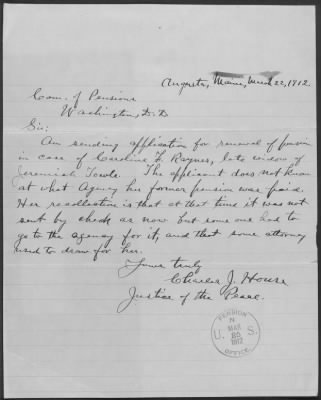 Augusta, Maine, March 22, 1912.
Com. of Pensions
Washington, D.C.
Sir:
Am sending application for renewal of pension
in case of Caroline F. Raynes, late widow of
Jeremiah Towle. The applicant does not know
at what Agency his former pension was paid.
Her recollection is that at that time it was not
sent by check as now but some one had to
go to the agency for it, and that some attorney
used to draw for her.
Yours truly
Charles J. House
Justice of the Peace.
PENSION
N
U. MAR S.
25
1912
OFFICE.